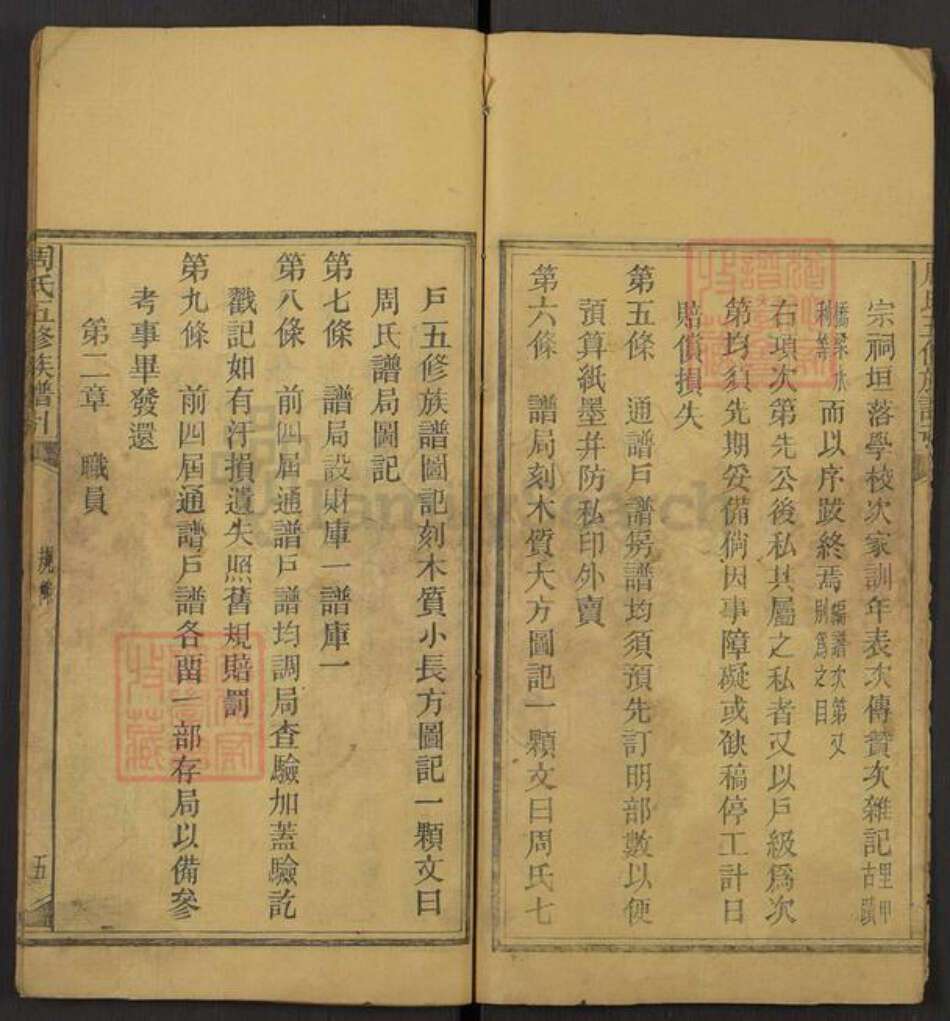 宗祠垣落學校次家訓年表次傳贊次雜記里甲古蹟
橋梁水利等而以序跋終焉編譜次第又則為之目
右項次第先公後私其屬之私者又以戶級爲次
第均須先期妥備倘因事障礙或缺稿停工計日
賠償損失
第五條　通譜戶譜房譜均須預先訂明部數以便
預算紙墨并防私印外賣
第六條　譜局刻木質大方圖記一顆文曰周氏七
戶五修族譜圖記刻木質小長方圖記一顆文曰
周氏譜局圖記
第七條　譜局設財庫一譜庫一
第八條　前四屆通譜戶譜均調局查驗加蓋驗訖
戳記如有汙損遺失照舊規賠罰
第九條　前四屆通譜戶譜各畱一部存局以備參
考事畢發還
第二章　職員
周氏五修族譜
五